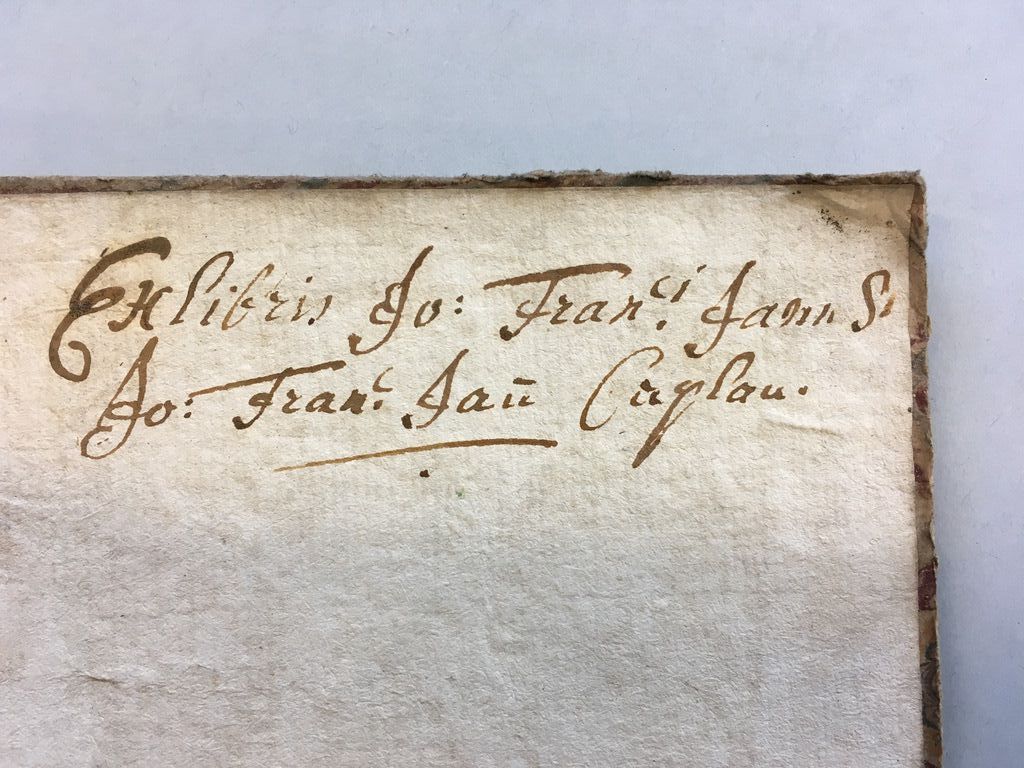 Ex libris Jo: Fran:ci Jann S:
Jo: Fran:c Jan̄ Caplan.